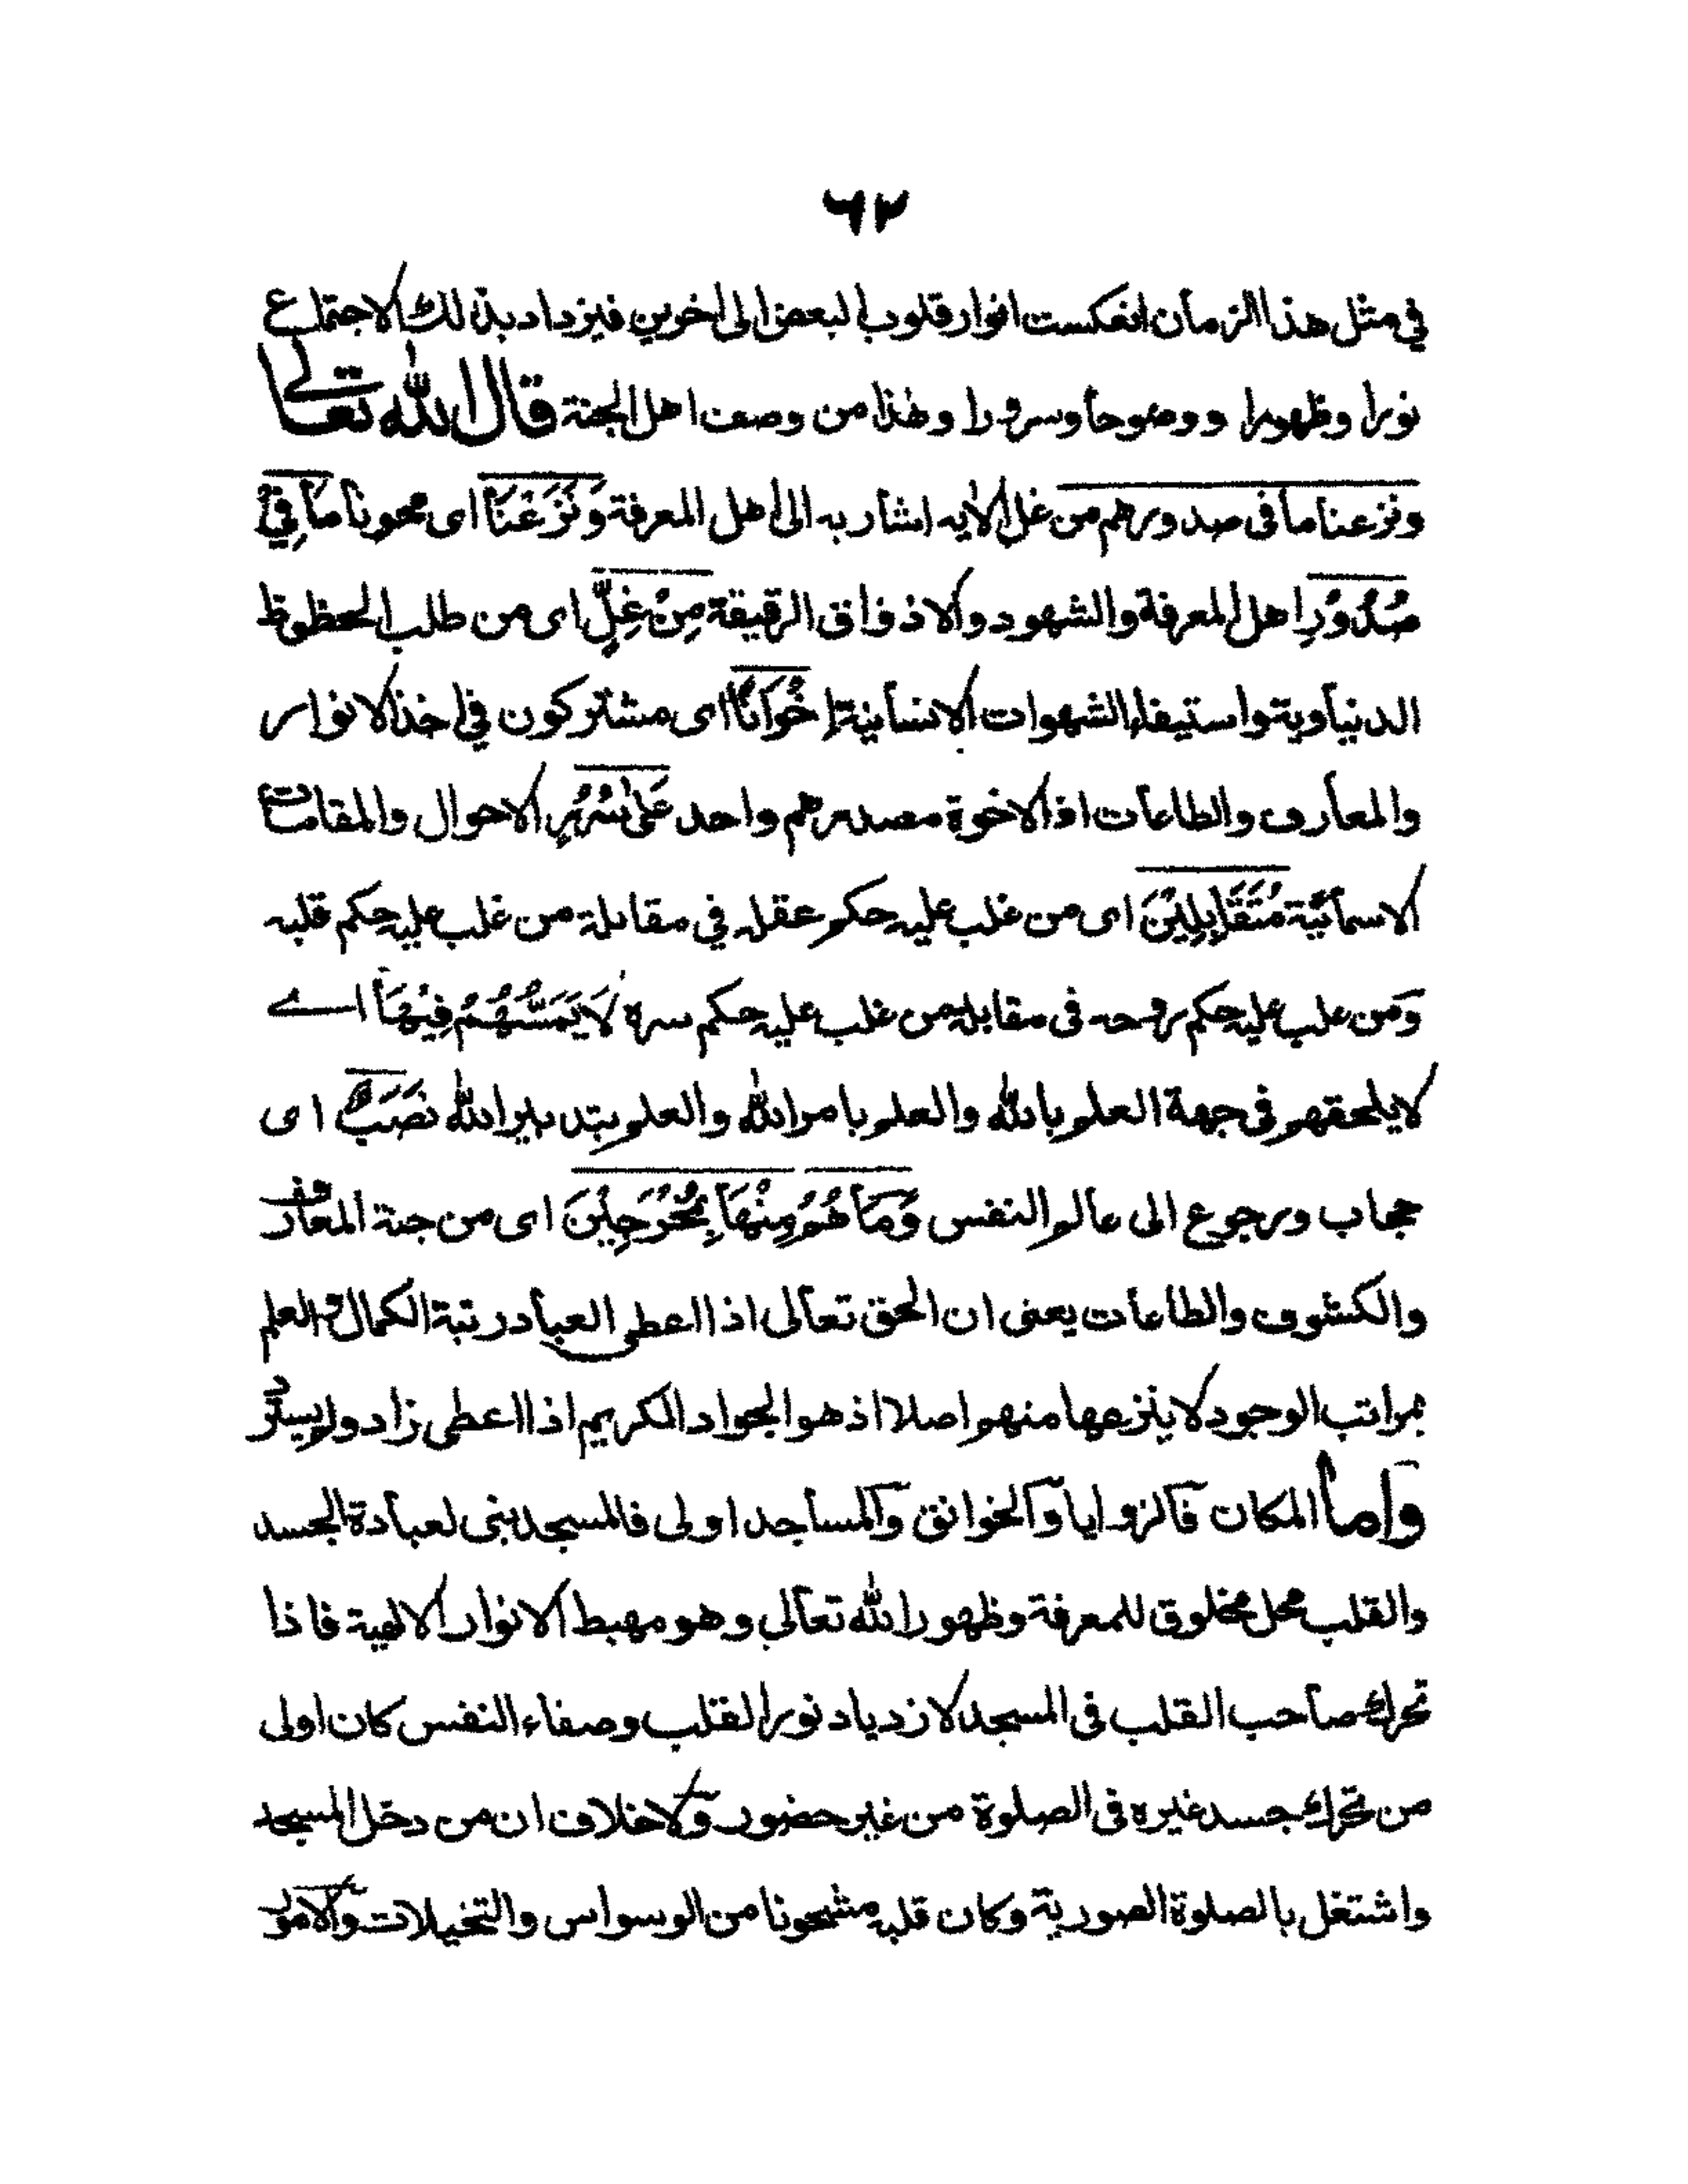 ٦٢
في مثل هذا الزمان انعكست انوار قلوب البعض الى اخرين فيزداد بذلك الاجتماع
نورا وظهورا ووضوحا وسرورا وهذا من وصف اهل الجنة قال الله تعالى
ونزعنا ما فى صدورهم من غل الايه اشار به الى اهل المعرفة وَنَزَعْنَا اى محونا مَا فِيْ
صُدُوْرِ اهل المعرفة والشهود والاذواق الرقيقة مِنْ غِلٍّ اى من طلب الحظوظ
الدنياوية واستيفاء الشهوات الانسانية اِخْوَانًا اى مشتركون في اخذ الانوار
والمعارف والطاعات اذ الاخوة مصدرهم واحد عَلٰى سُرُرٍ الاحوال والمقامات
الاسمائية مُتَقَابِلِيْنَ اى من غلب عليه حكم عقله في مقابلة من غلب عليه حكم قلبه
وَمن غلب عليه حكم روحه فى مقابلة من غلب عليه حكم سره لَا يَمَسُّهُمْ فِيْهَا اے
لا يلحقهم فى جهة العلم بالله والعلم بامر الله والعلم بتدبير الله نَصَبٌ اى
حجاب ورجوع الى عالم النفس وَمَا هُمْ مِنْهَا بِمُخْرَجِيْنَ اى من جنة المعارف
والكشوف والطاعات يعنى ان الحق تعالى اذا اعطى العباد رتبة الكمال والعلم
بمراتب الوجود لا ينزعها منهم اصلا اذ هو الجواد الكريم اذا اعطى زاد ولا يسترد
واما المكان فالزوايا والخوانق والمساجد اولى فالمسجد بنى لعبادة الجسد
والقلب محل مخلوق للمعرفة وظهور الله تعالى وهو مهبط الانوار الالهية فاذا
تحرك صاحب القلب فى المسجد لازدياد نور القلب وصفاء النفس كان اولى
من تحرك جسد غيره فى الصلوة من غير حضور ولا خلاف ان من دخل المسجد
واشتغل بالصلوة الصورية وكان قلبه مشحونا من الوسواس والتخيلات والامور